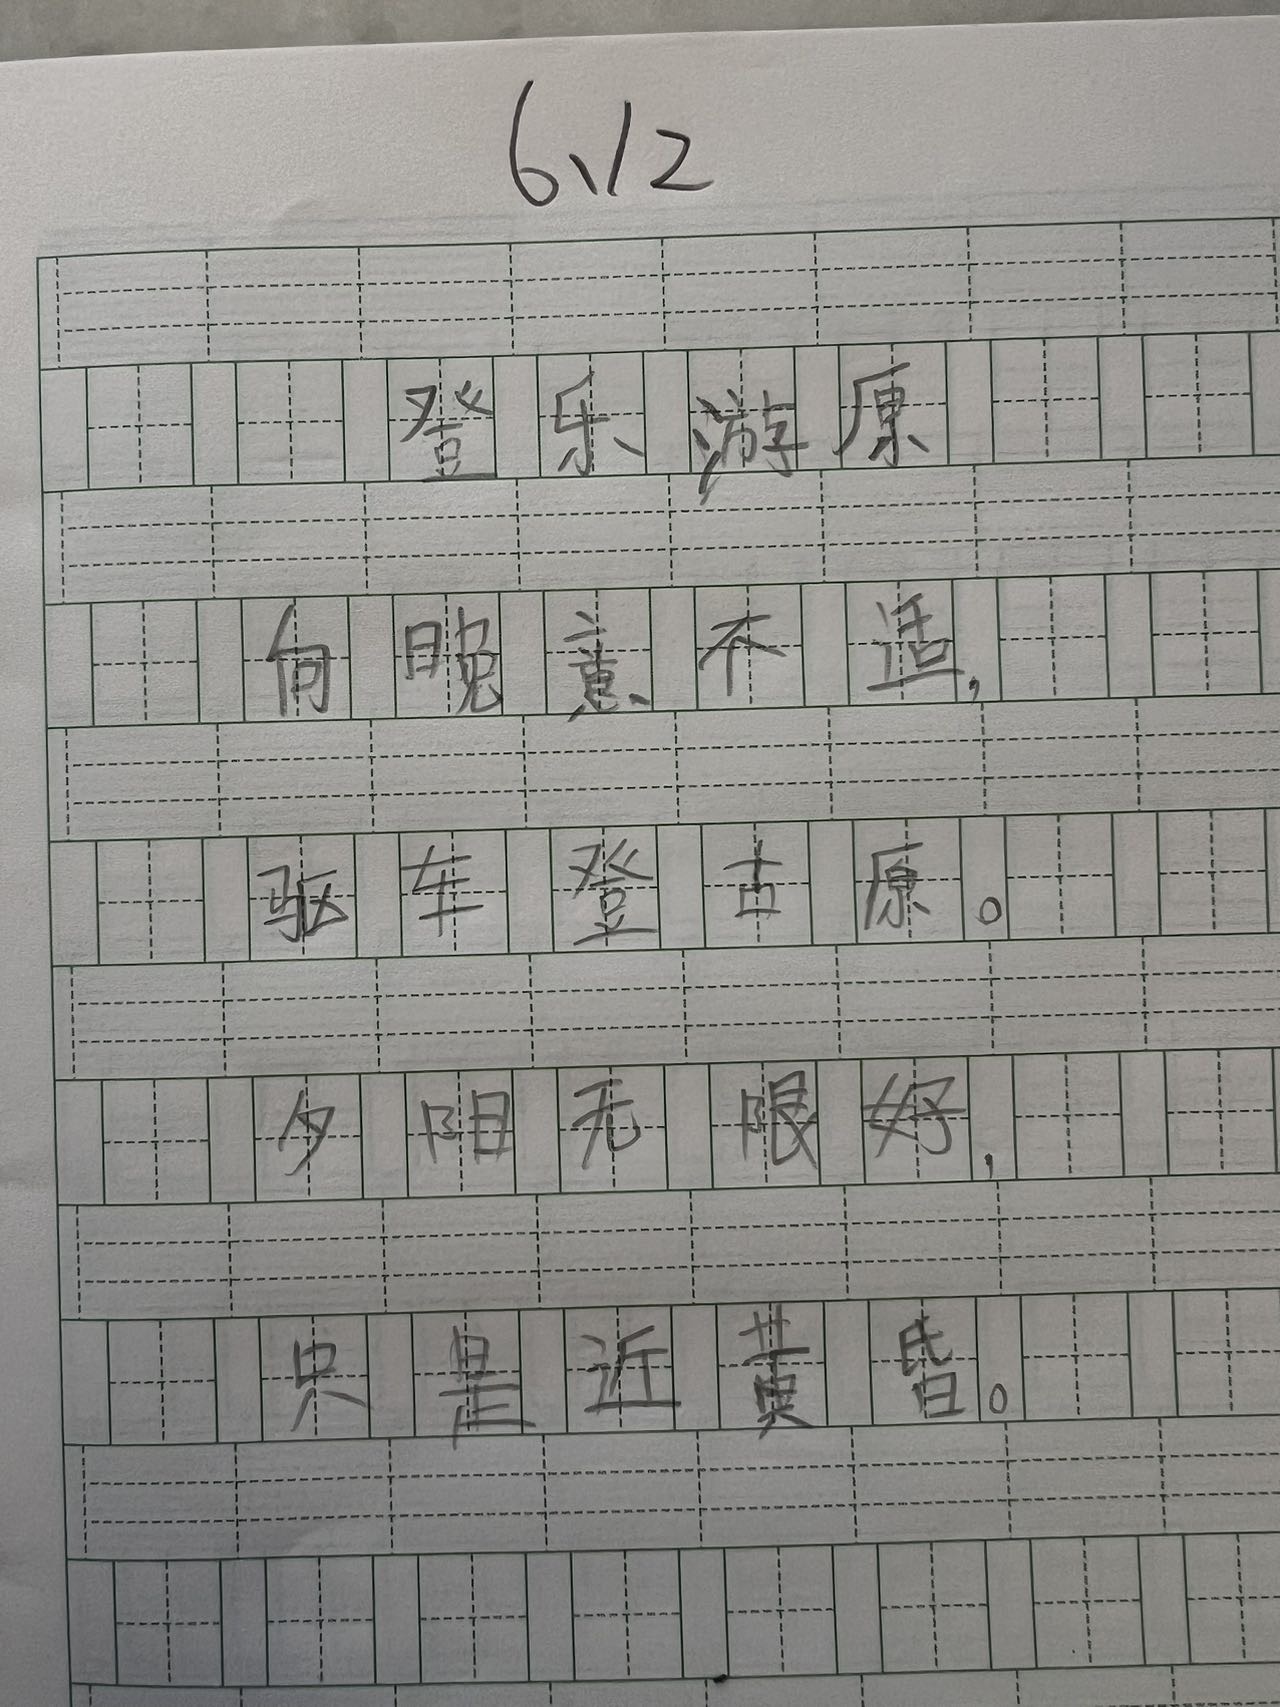 6、12
登乐游原
向晚意不适,
驱车登古原。
夕阳无限好,
只是近黄昏。